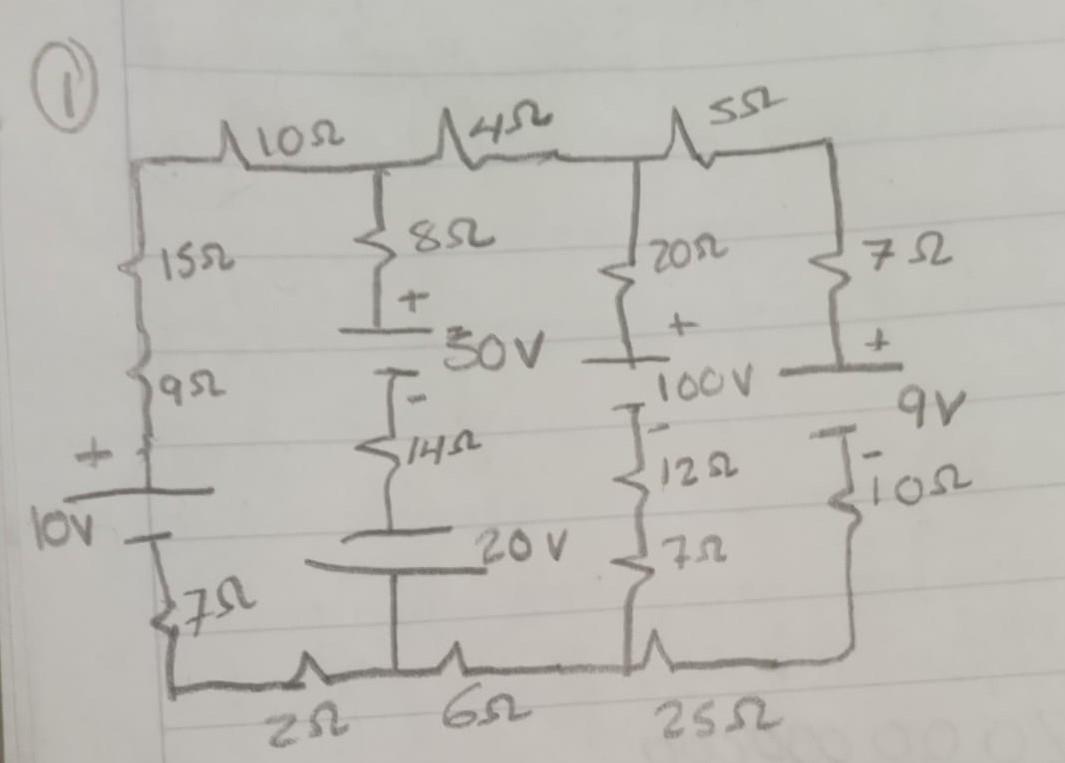 1
10Ω
4Ω
5Ω
15Ω
8Ω
20Ω
7Ω
+
50V
+
+
9Ω
-
100V
9V
+
14Ω
-
12Ω
-
10Ω
10V
20V
7Ω
7Ω
2Ω
6Ω
25Ω